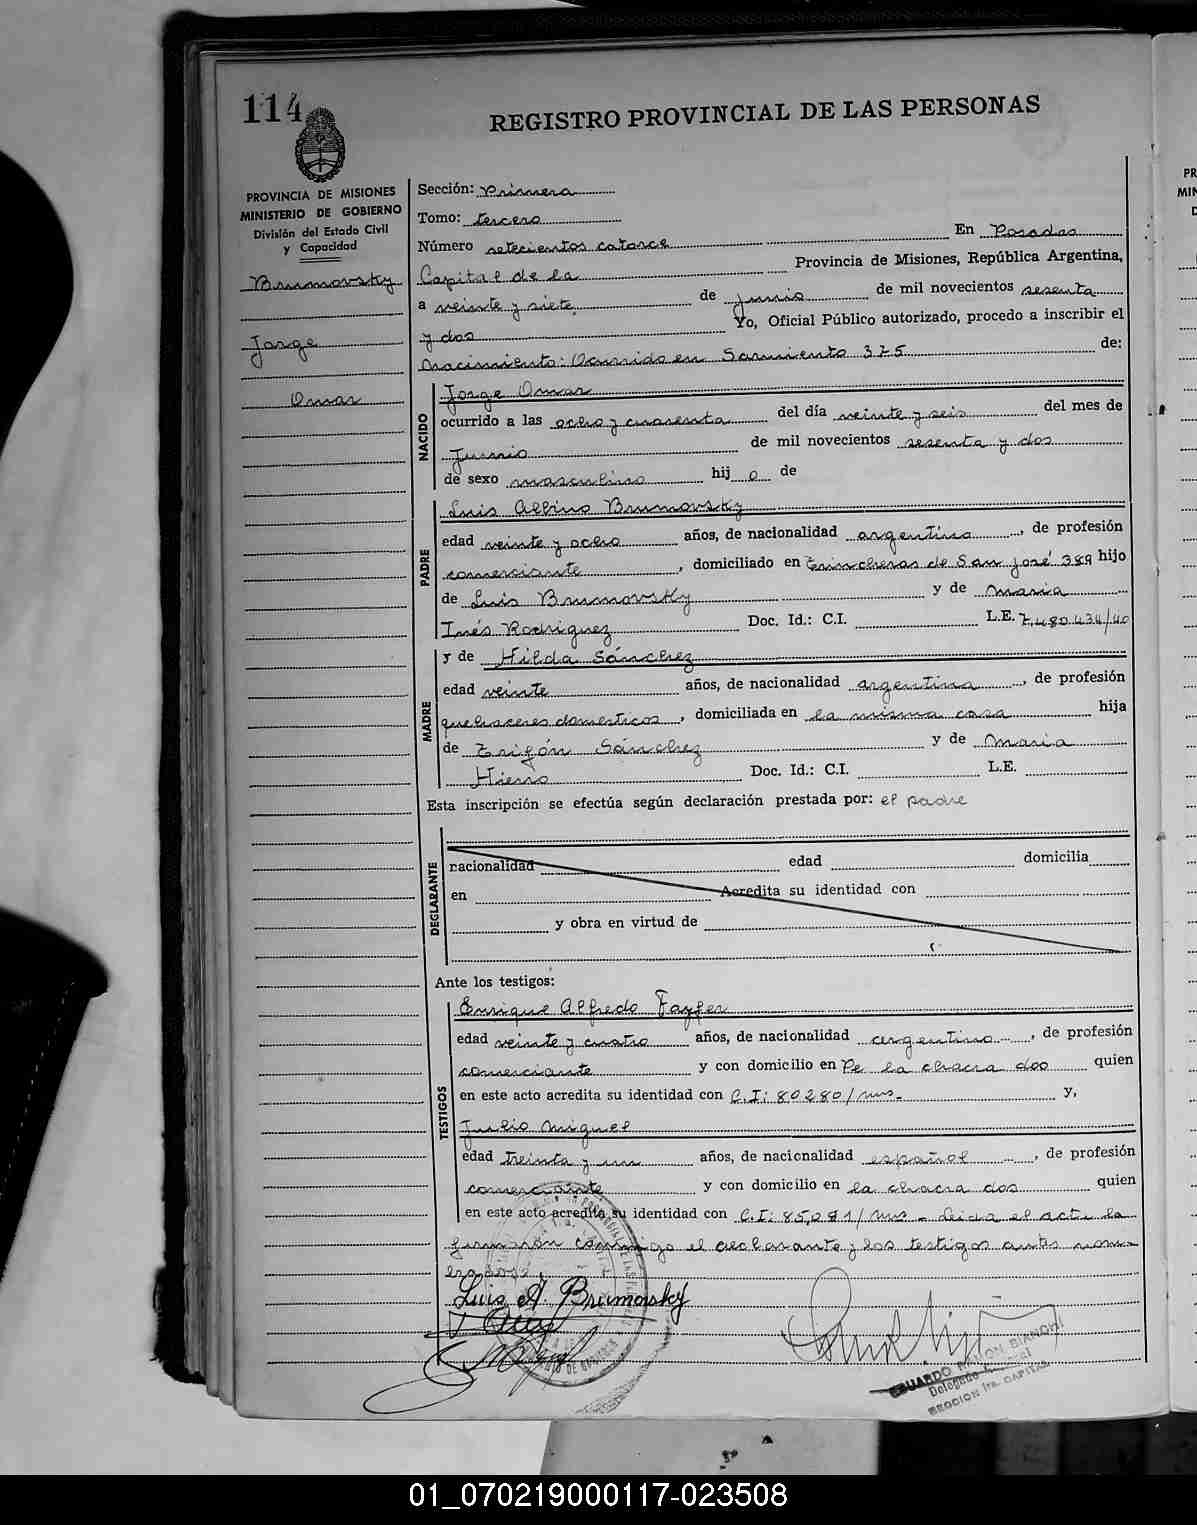 114
REGISTRO PROVINCIAL DE LAS PERSONAS
PROVINCIA DE MISIONES
MINISTERIO DE GOBIERNO
División del Estado Civil
y Capacidad
Brumovsky
Jorge
Omar
Sección: Primera
Tomo: tercero
Número setecientos catorce En Posadas
Capital de la Provincia de Misiones, República Argentina,
a veinte y siete de junio de mil novecientos sesenta
y dos Yo, Oficial Público autorizado, procedo a inscribir el
nacimiento: Ocurrido en Sarmiento 375 de:
NACIDO
Jorge Omar
ocurrido a las ocho y cuarenta del día veinte y seis del mes de
Junio de mil novecientos sesenta y dos
de sexo masculino hij o de
PADRE
Luis Albino Brumovsky
edad veinte y ocho años, de nacionalidad argentino, de profesión
comerciante, domiciliado en Trincheras de San José 389 hijo
de Luis Brumovsky y de Maria
Inés Rodriguez Doc. Id.: C.I. L.E. 7.480.434/40
MADRE
y de Hilda Sánchez
edad veinte años, de nacionalidad argentina, de profesión
quehaceres domesticos, domiciliada en la misma casa hija
de Trifón Sánchez y de Maria
Hierro Doc. Id.: C.I. L.E.
Esta inscripción se efectúa según declaración prestada por: el padre
DECLARANTE
nacionalidad edad domicilia
en Acredita su identidad con
y obra en virtud de
Ante los testigos:
TESTIGOS
Enrique Alfredo Fayfer
edad veinte y cuatro años, de nacionalidad argentino, de profesión
comerciante y con domicilio en la chacra dos quien
en este acto acredita su identidad con C.I: 80280/mns. y,
Julio Miguel
edad treinta y un años, de nacionalidad español, de profesión
comerciante y con domicilio en la chacra dos quien
en este acto acredita su identidad con C.I: 85,081/mns. Leida el acta la
firmaron conmigo el declarante y los testigos antes nom-
Luis A. Brumovsky
EDUARDO RAMON BIANCHI
Delegado
SECCION 1ra. CAPITAL
01_070219000117-023508